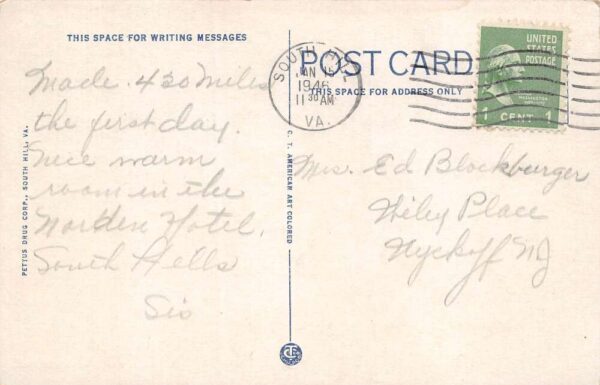 THIS SPACE FOR WRITING MESSAGES
Made 430 miles
the first day.
Nice warm
room in the
Norden Hotel.
South Hills
Sis
PETTUS DRUG CORP., SOUTH HILL, VA.
C. T. AMERICAN ART COLORED
POST CARD
THIS SPACE FOR ADDRESS ONLY
SOUTH HILL
JAN 15
1946
11 30 AM
VA.
UNITED
STATES
POSTAGE
WASHINGTON
1 CENT 1
Mrs. Ed Blockburger
Wiley Place
Wyckoff NJ